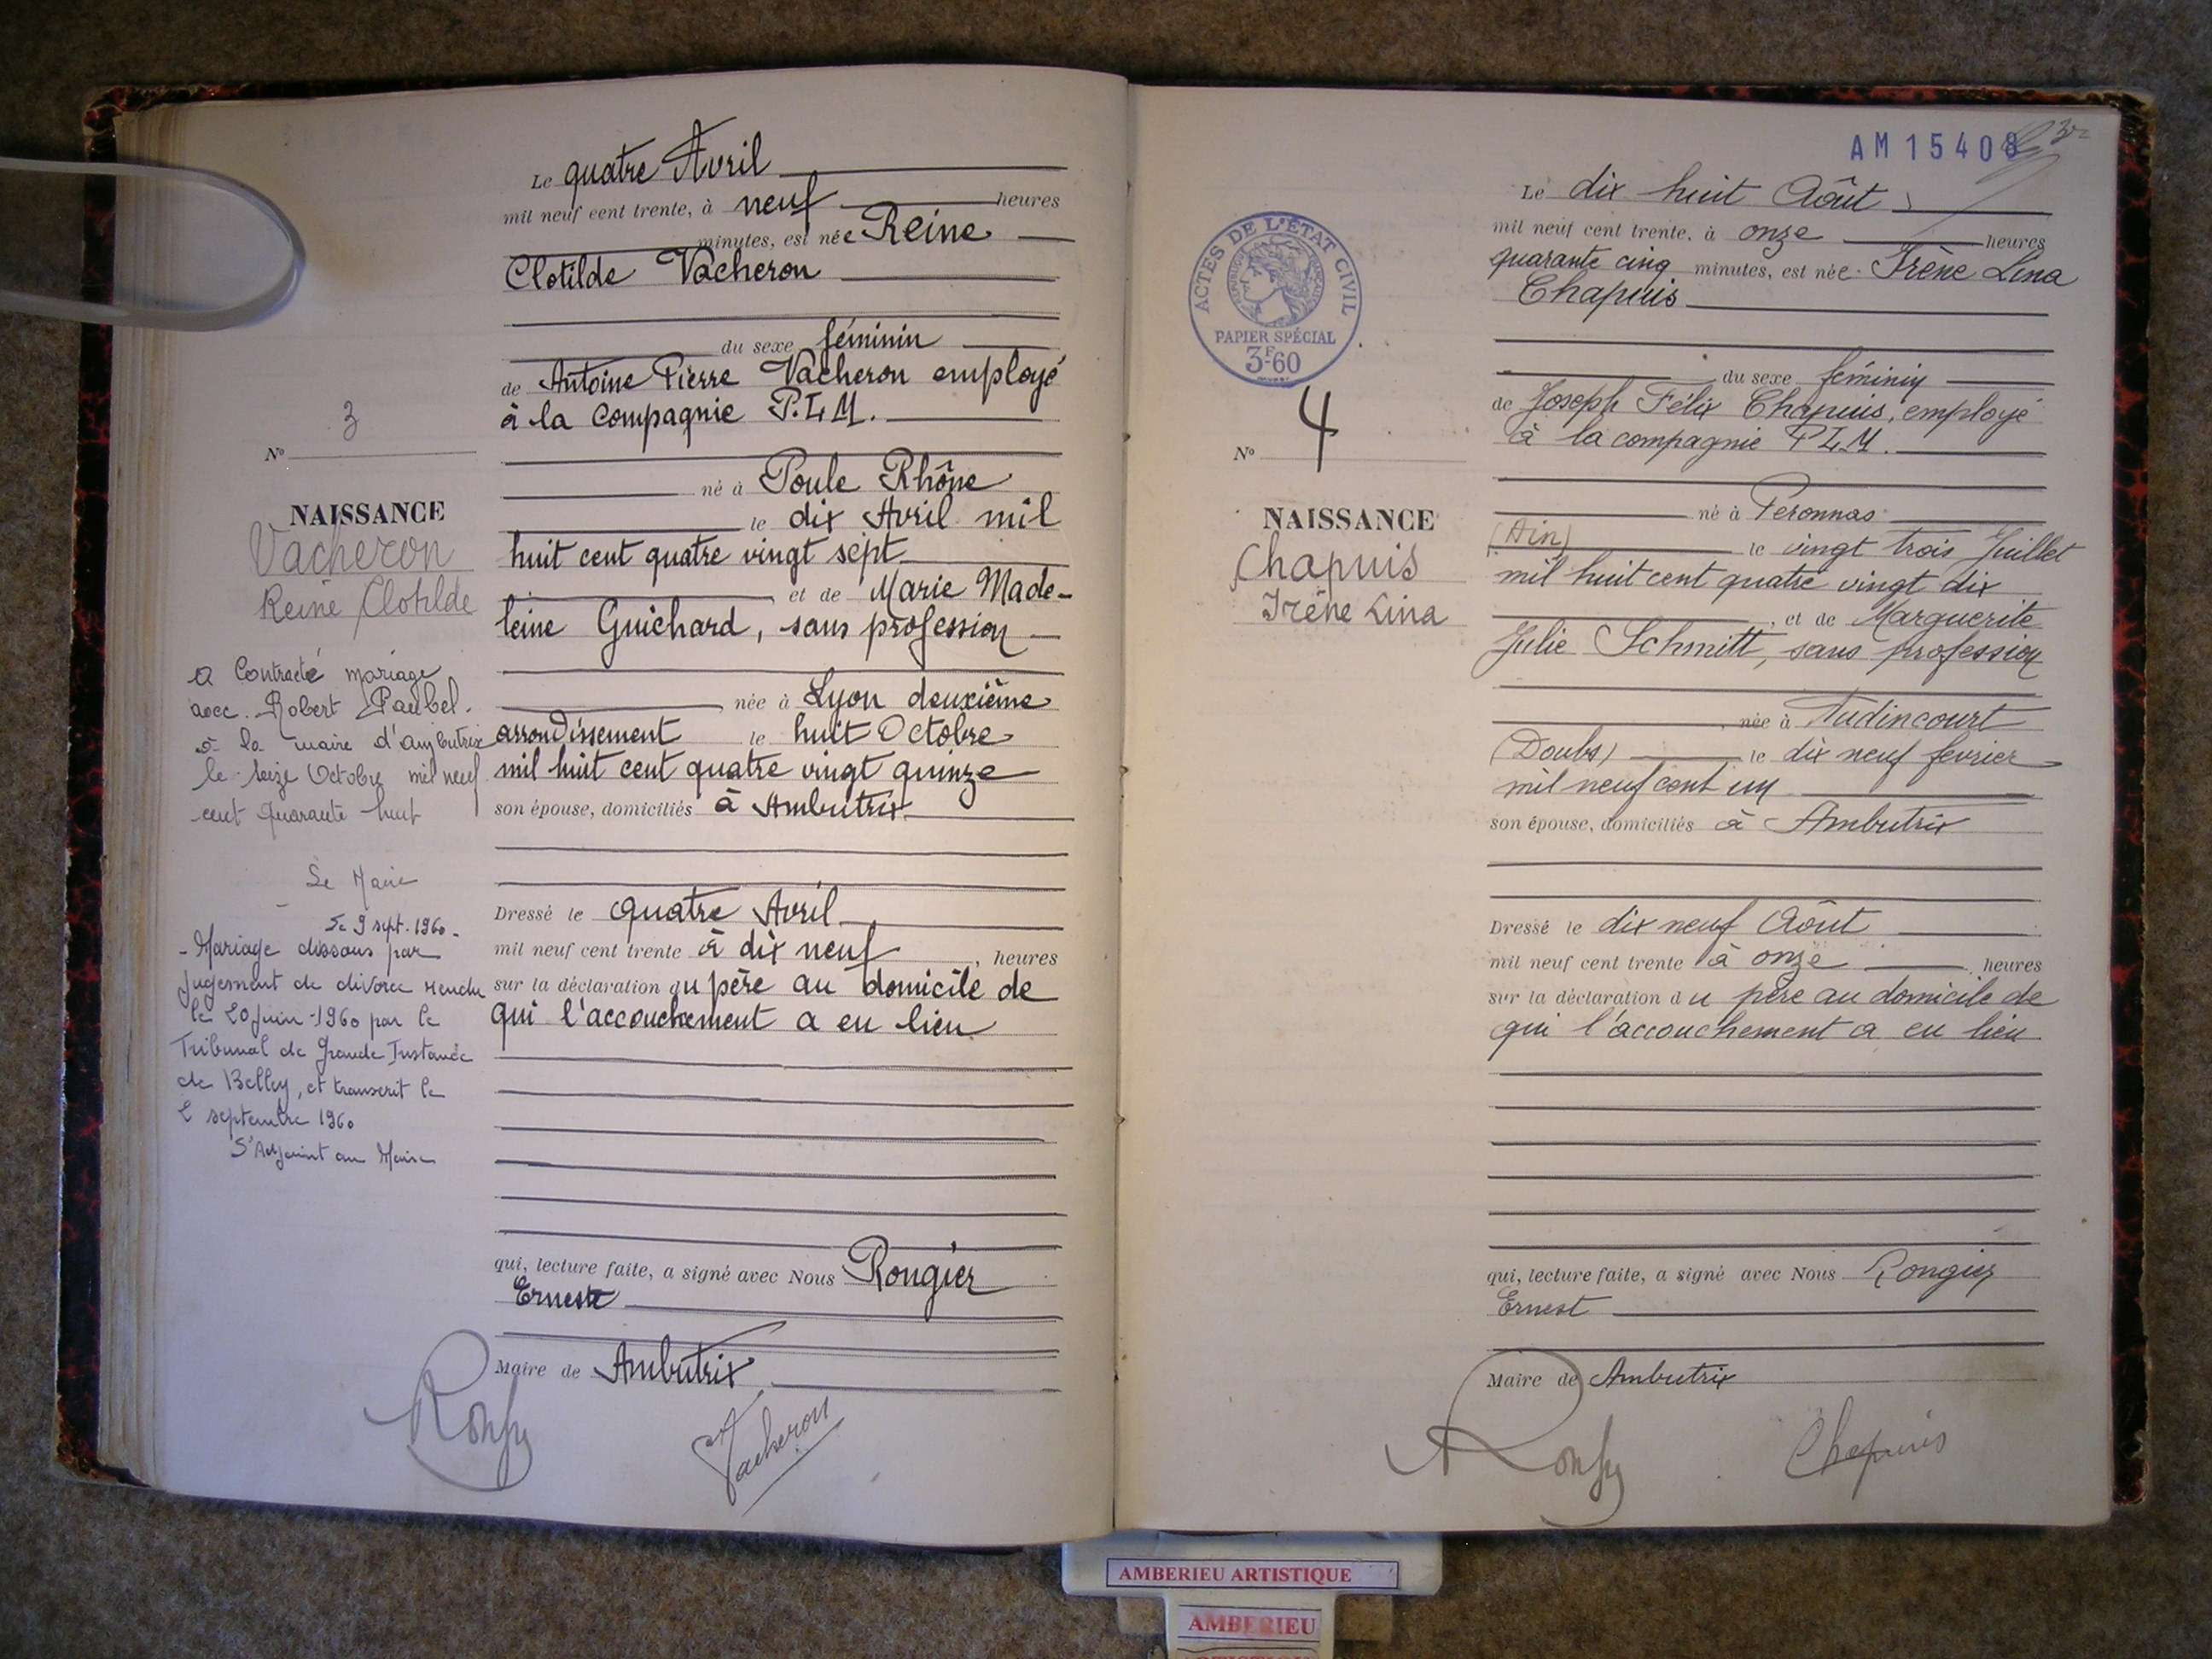 Le quatre Avril
mil neuf cent trente, à neuf heures
minutes, est née Reine
Clotilde Vacheron
du sexe féminin
de Antoine Pierre Vacheron employé
à la Compagnie P.L.M.
né à Poule Rhône
le dix Avril mil
huit cent quatre vingt sept
et de Marie Made-
leine Guichard, sans profession
née à Lyon deuxième
arrondissement le huit Octobre
mil huit cent quatre vingt quinze
son épouse, domiciliés à Ambutrix
Dressé le quatre Avril
mil neuf cent trente à dix neuf, heures
sur la déclaration du père au domicile de
qui l'accouchement a eu lieu
qui, lecture faite, a signé avec Nous Rougier
Ernest
Maire de Ambutrix
Vacheron
3
No
NAISSANCE
Vacheron
Reine Clotilde
a Contracté mariage
avec Robert Paubel.
à la mairie d'Ambutrix
le seize Octobre mil neuf
cent quarante huit
Le Maire
Le 9 sept. 1960.
- Mariage dissous par
jugement de divorce rendu
le 20 juin 1960 par le
Tribunal de Grande Instance
de Belley, et transcrit le
2 septembre 1960
L'Adjoint au Maire
AM15408
ACTES DE L'ÉTAT CIVIL
PAPIER SPÉCIAL
3F60
4
No
NAISSANCE
Chapuis
Irène Lina
Le dix huit Août
mil neuf cent trente, à onze heures
quarante cinq minutes, est née Irène Lina
Chapuis
du sexe féminin
de Joseph Félix Chapuis, employé
à la compagnie PLM.
né à Peronnas
(Ain) le vingt trois Juillet
mil huit cent quatre vingt dix
, et de Marguerite
Julie Schmitt, sans profession
, née à Audincourt
(Doubs) le dix neuf fevrier
mil neuf cent un
son épouse, domiciliés à Ambutrix
Dressé le dix neuf Août
mil neuf cent trente à onze, heures
sur la déclaration du père au domicile de
qui l'accouchement a eu lieu
qui, lecture faite, a signé avec Nous Rougier
Ernest
Maire de Ambutrix
Chapuis
AMBERIEU ARTISTIQUE
AMBERIEU